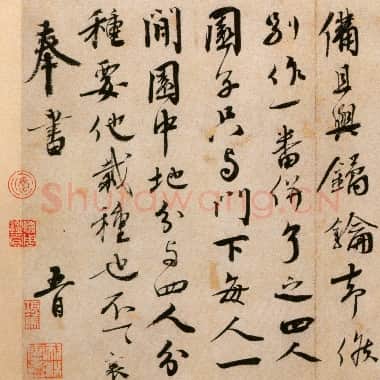 備且與鐍鑰却候
別作一番併了之四人
園子只与門下每人一
間園中地分与四人分
種要他栽種也不一
奉書
Shufawang.CN